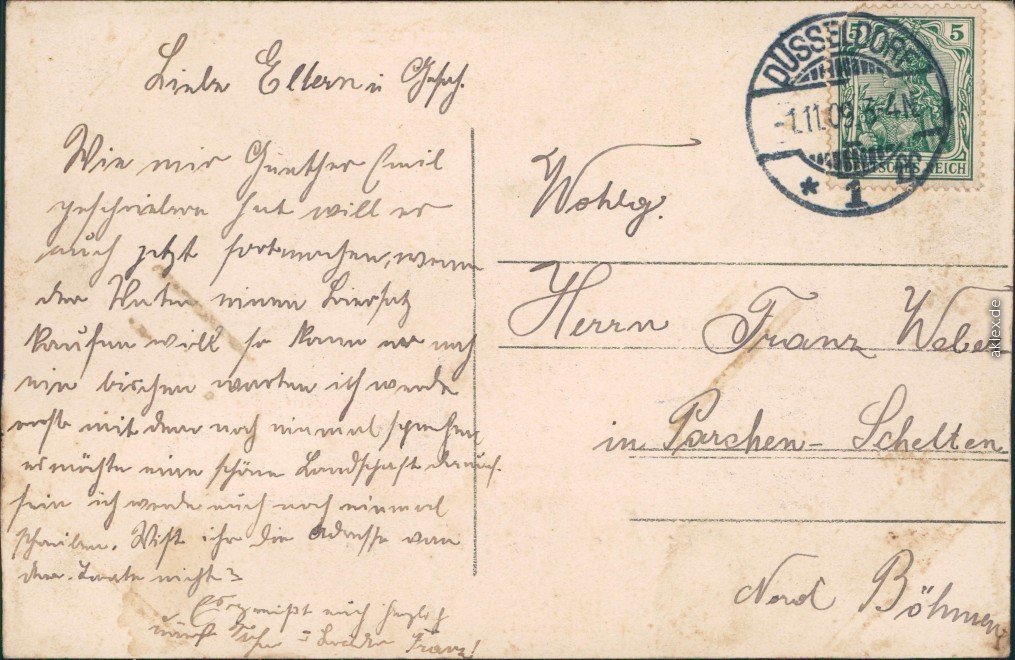 Liebe Eltern u Gesch.
Wie mir Günther Emil
geschrieben hat will er
auch jetzt fortmachen, wenn
der Vater einen Biersatz
kaufen will so kann er noch
ein bischen warten ich werde
erst mit dem noch einmal sprechen
es möchte eine schöne Landschaft darauf.
sein ich werde euch noch einmal
schreiben. Wist ihr die Adresse von
der Tante nicht?
Es grüßt euch herzlich
euer Sohn u Bruder Franz!
DÜSSELDORF
-1.11.09. 3-4N.
* 1
5
DEUTSCHES REICH
Wohlg.
Herrn Franz Weber
in Parchen - Schelten
Nord Böhmen
aklex.de